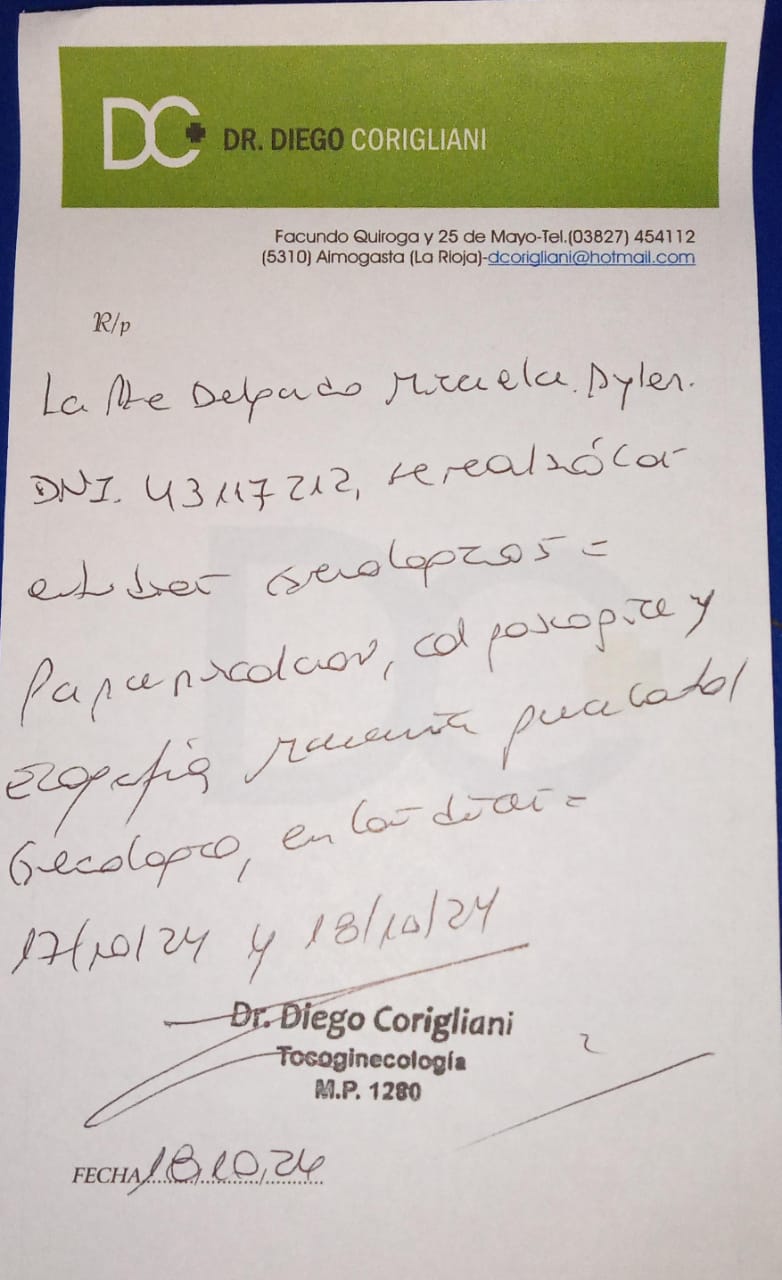 DC
DR. DIEGO CORIGLIANI
Facundo Quiroga y 25 de Mayo-Tel.(03827) 454112
(5310) Aimogasta (La Rioja)-dcorigliani@hotmail.com
R/p
La Pte Delgado Micaela
DNI. 43117212, se realizó los
estudios Ginecologicos =
Papanicolaou, colposcopia y
Ecografia Mamaria para control
Ginecologico, en los dias =
17/10/24 y 18/10/24
Dr. Diego Corigliani
Tocoginecología
M.P. 1280
FECHA 18.10.24